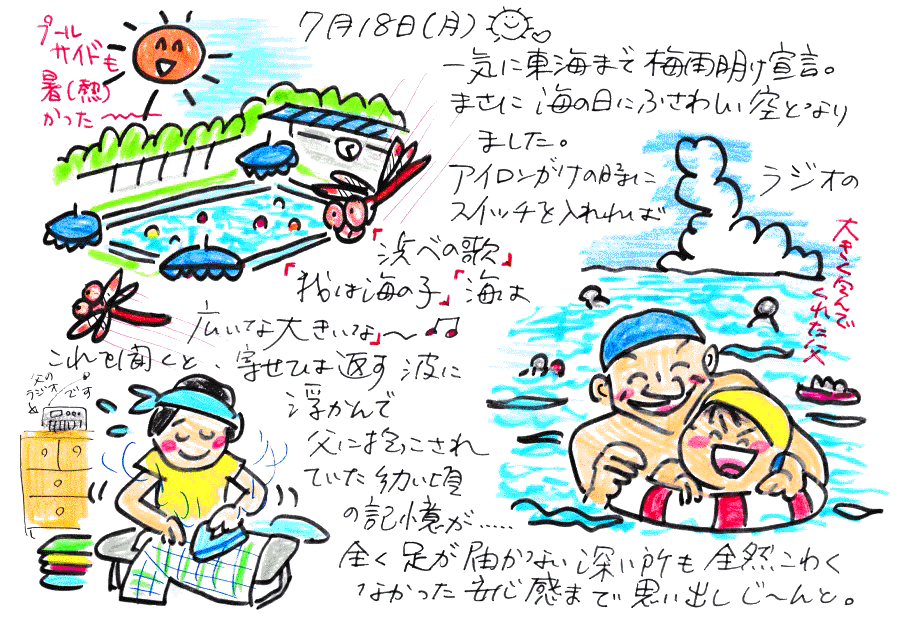 7月18日(月)
プール
サイドも
暑(熱)
かった〜
一気に東海まで梅雨明け宣言。
まさに海の日にふさわしい空となり
ました。
アイロンがけの時に ラジオの
スイッチを入れれば
『浜べの歌』
『我は海の子』『海は
広いな大きいな』〜♫
これを聞くと、寄せては返す波に
浮かんで
父に抱っこされ
ていた幼い頃
の記憶が……
全く足が届かない深い所も全然こわく
なかった安心感まで思い出しじ〜んと。
父の
ラジオ
です
大きく包んで
くれた父